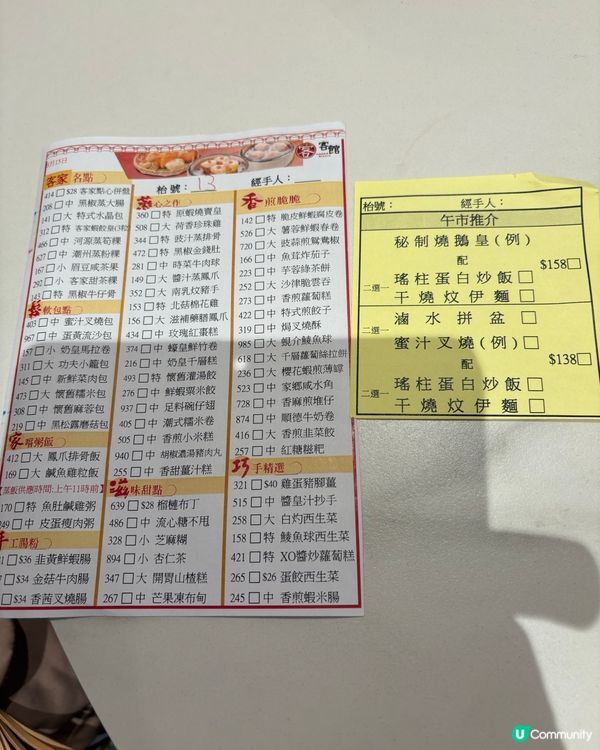 月15日
客館
枱號：13 經手人：
客家名點
414 □ $28 客家點心併盤
208 □ 中 黑椒蒸大腸
141 □ 大 特式水晶包
312 □ 特 客家蝦餃皇(3粒
466 □ 中 河源蒸筍粿
627 □ 中 潮州蒸粉粿
167 □ 小 眉豆咸茶果
292 □ 小 客家甜茶粿
143 □ 特 黑椒牛仔骨
鬆軟包點
403 □ 中 蜜汁叉燒包
967 □ 中 蛋黃流沙包
157 □ 小 奶皇馬拉卷
311 □ 大 功夫小籠包
145 □ 中 新鮮菜肉包
473 □ 大 懷舊糯米包
308 □ 中 懷舊麻蓉包
219 □ 中 黑松露蘑菇包
家嚐粥飯
412 □ 大 鳳爪排骨飯
169 □ 大 鹹魚雞粒飯
【蒸飯供應時間:上午11時前】
170 □ 特 魚肚鹹雞粥
249 □ 中 皮蛋瘦肉粥
手工腸粉
1 □ $36 韭黃鮮蝦腸
7 □ $34 金菇牛肉腸
□ $34 香茜叉燒腸
蒸心之作
360 □ 特 原蝦燒賣皇
508 □ 大 荷香珍珠雞
344 □ 特 豉汁蒸排骨
472 □ 特 黑椒金錢肚
281 □ 中 時菜牛肉球
149 □ 中 醬汁蒸鳳爪
352 □ 大 南乳炆豬手
153 □ 特 北菇棉花雞
156 □ 大 滋補藥膳鳳爪
434 □ 中 玫瑰紅棗糕
374 □ 中 蠔皇鮮竹卷
216 □ 中 奶皇千層糕
493 □ 特 懷舊灌湯餃
276 □ 中 鮮蝦粟米餃
937 □ 中 足料碗仔翅
405 □ 中 潮式糯米卷
505 □ 中 香煎小米糕
940 □ 中 胡椒濃湯豬肉丸
255 □ 中 香甜薑汁糕
滋味甜點
639 □ $28 榴槤布丁
486 □ 中 流心糖不甩
328 □ 小 芝麻糊
894 □ 小 杏仁茶
347 □ 大 開胃山楂糕
267 □ 中 芒果凍布甸
香煎脆脆
142 □ 特 脆皮鮮蝦腐皮卷
526 □ 大 薯蓉鮮蝦春卷
720 □ 大 豉蒜煎鴛鴦椒
166 □ 中 魚茸炸茄子
223 □ 中 芋蓉綠茶餅
252 □ 大 沙律脆雲吞
273 □ 中 香煎蘿蔔糕
422 □ 中 特式煎餃子
319 □ 中 焗叉燒酥
985 □ 大 蜆介鯪魚球
618 □ 大 千層蘿蔔絲拉餅
236 □ 大 櫻花蝦煎薄罉
523 □ 中 家鄉咸水角
728 □ 中 香麻煎堆仔
874 □ 中 順德牛奶卷
416 □ 大 香煎韭菜餃
257 □ 中 紅糖糍粑
巧手精選
321 □ $40 雞蛋豬腳薑
515 □ 中 醬皇汁抄手
258 □ 大 白灼西生菜
158 □ 特 鯪魚球西生菜
421 □ 特 XO醬炒蘿蔔糕
265 □ $26 蛋餃西生菜
245 □ 中 香煎蝦米腸
枱號： 經手人：
午市推介
秘制燒鵝皇(例)
配 $158□
二選一
瑤柱蛋白炒飯□
干燒炆伊麵□
滷水拼盆□
二選一
蜜汁叉燒(例)□
配 $138□
瑤柱蛋白炒飯□
二選一
干燒炆伊麵□
U Community